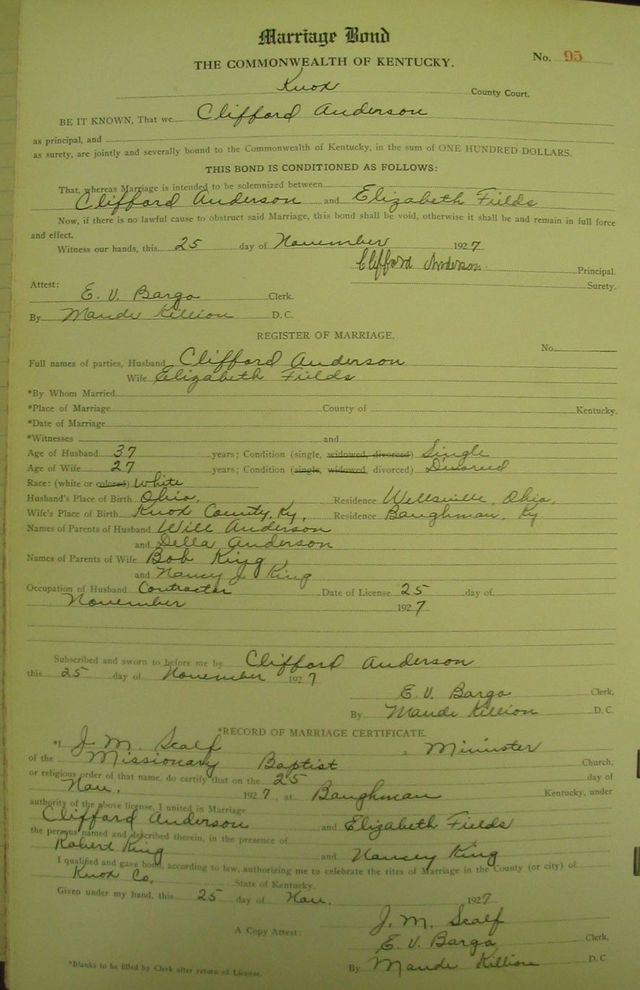 Marriage Bond
THE COMMONWEALTH OF KENTUCKY.
No. 95
Knox County Court.
BE IT KNOWN, That we Clifford Anderson
as principal, and
as surety, are jointly and severally bound to the Commonwealth of Kentucky, in the sum of ONE HUNDRED DOLLARS.
THIS BOND IS CONDITIONED AS FOLLOWS:
That, whereas Marriage is intended to be solemnized between
Clifford Anderson and Elizabeth Fields
Now, if there is no lawful cause to obstruct said Marriage, this bond shall be void, otherwise it shall be and remain in full force
and effect.
Witness our hands, this 25 day of November 1927
Clifford Anderson Principal.
Surety.
Attest:
E. V. Bargo Clerk.
By Maude Killion D. C.
REGISTER OF MARRIAGE.
No.
Full names of parties, Husband Clifford Anderson
Wife Elizabeth Fields
*By Whom Married
*Place of Marriage County of Kentucky.
*Date of Marriage
*Witnesses and
Age of Husband 37 years; Condition (single, widowed, divorced) Single
Age of Wife 27 years; Condition (single, widowed, divorced) Divorced
Race: (white or colored) White
Husband's Place of Birth Ohio, Residence Wellsville, Ohio,
Wife's Place of Birth Knox County, Ky, Residence Baughman, Ky
Names of Parents of Husband Will Anderson
and Della Anderson
Names of Parents of Wife Bob King
and Nancy J. King
Occupation of Husband Contractor Date of License 25 day of
November 1927
Subscribed and sworn to before me by Clifford Anderson
this 25 day of November 1927
E. V. Bargo Clerk,
By Maude Killion D. C.
*RECORD OF MARRIAGE CERTIFICATE.
*I J. M. Scalf, Minister
of the Missionary Baptist Church,
or religious order of that name, do certify that on the 25 day of
Nov. 1927, at Baughman Kentucky, under
authority of the above license, I united in Marriage
Clifford Anderson and Elizabeth Fields
the persons named and described therein, in the presence of
Robert King and Nancey King
I qualified and gave bond, according to law, authorizing me to celebrate the rites of Marriage in the County (or city) of
Knox Co, State of Kentucky.
Given under my hand, this 25 day of Nov. 1927
J. M. Scalf
A Copy Attest: E. V. Bargo Clerk,
By Maude Killion D. C.
*Blanks to be filled by Clerk after return of License.